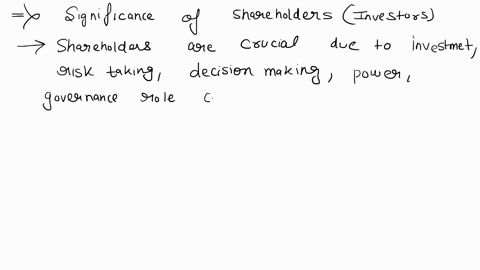 => Significance of shareholders (Investors)
→ Shareholders are crucial due to investmet,
risk taking, decision making, power,
governance role c